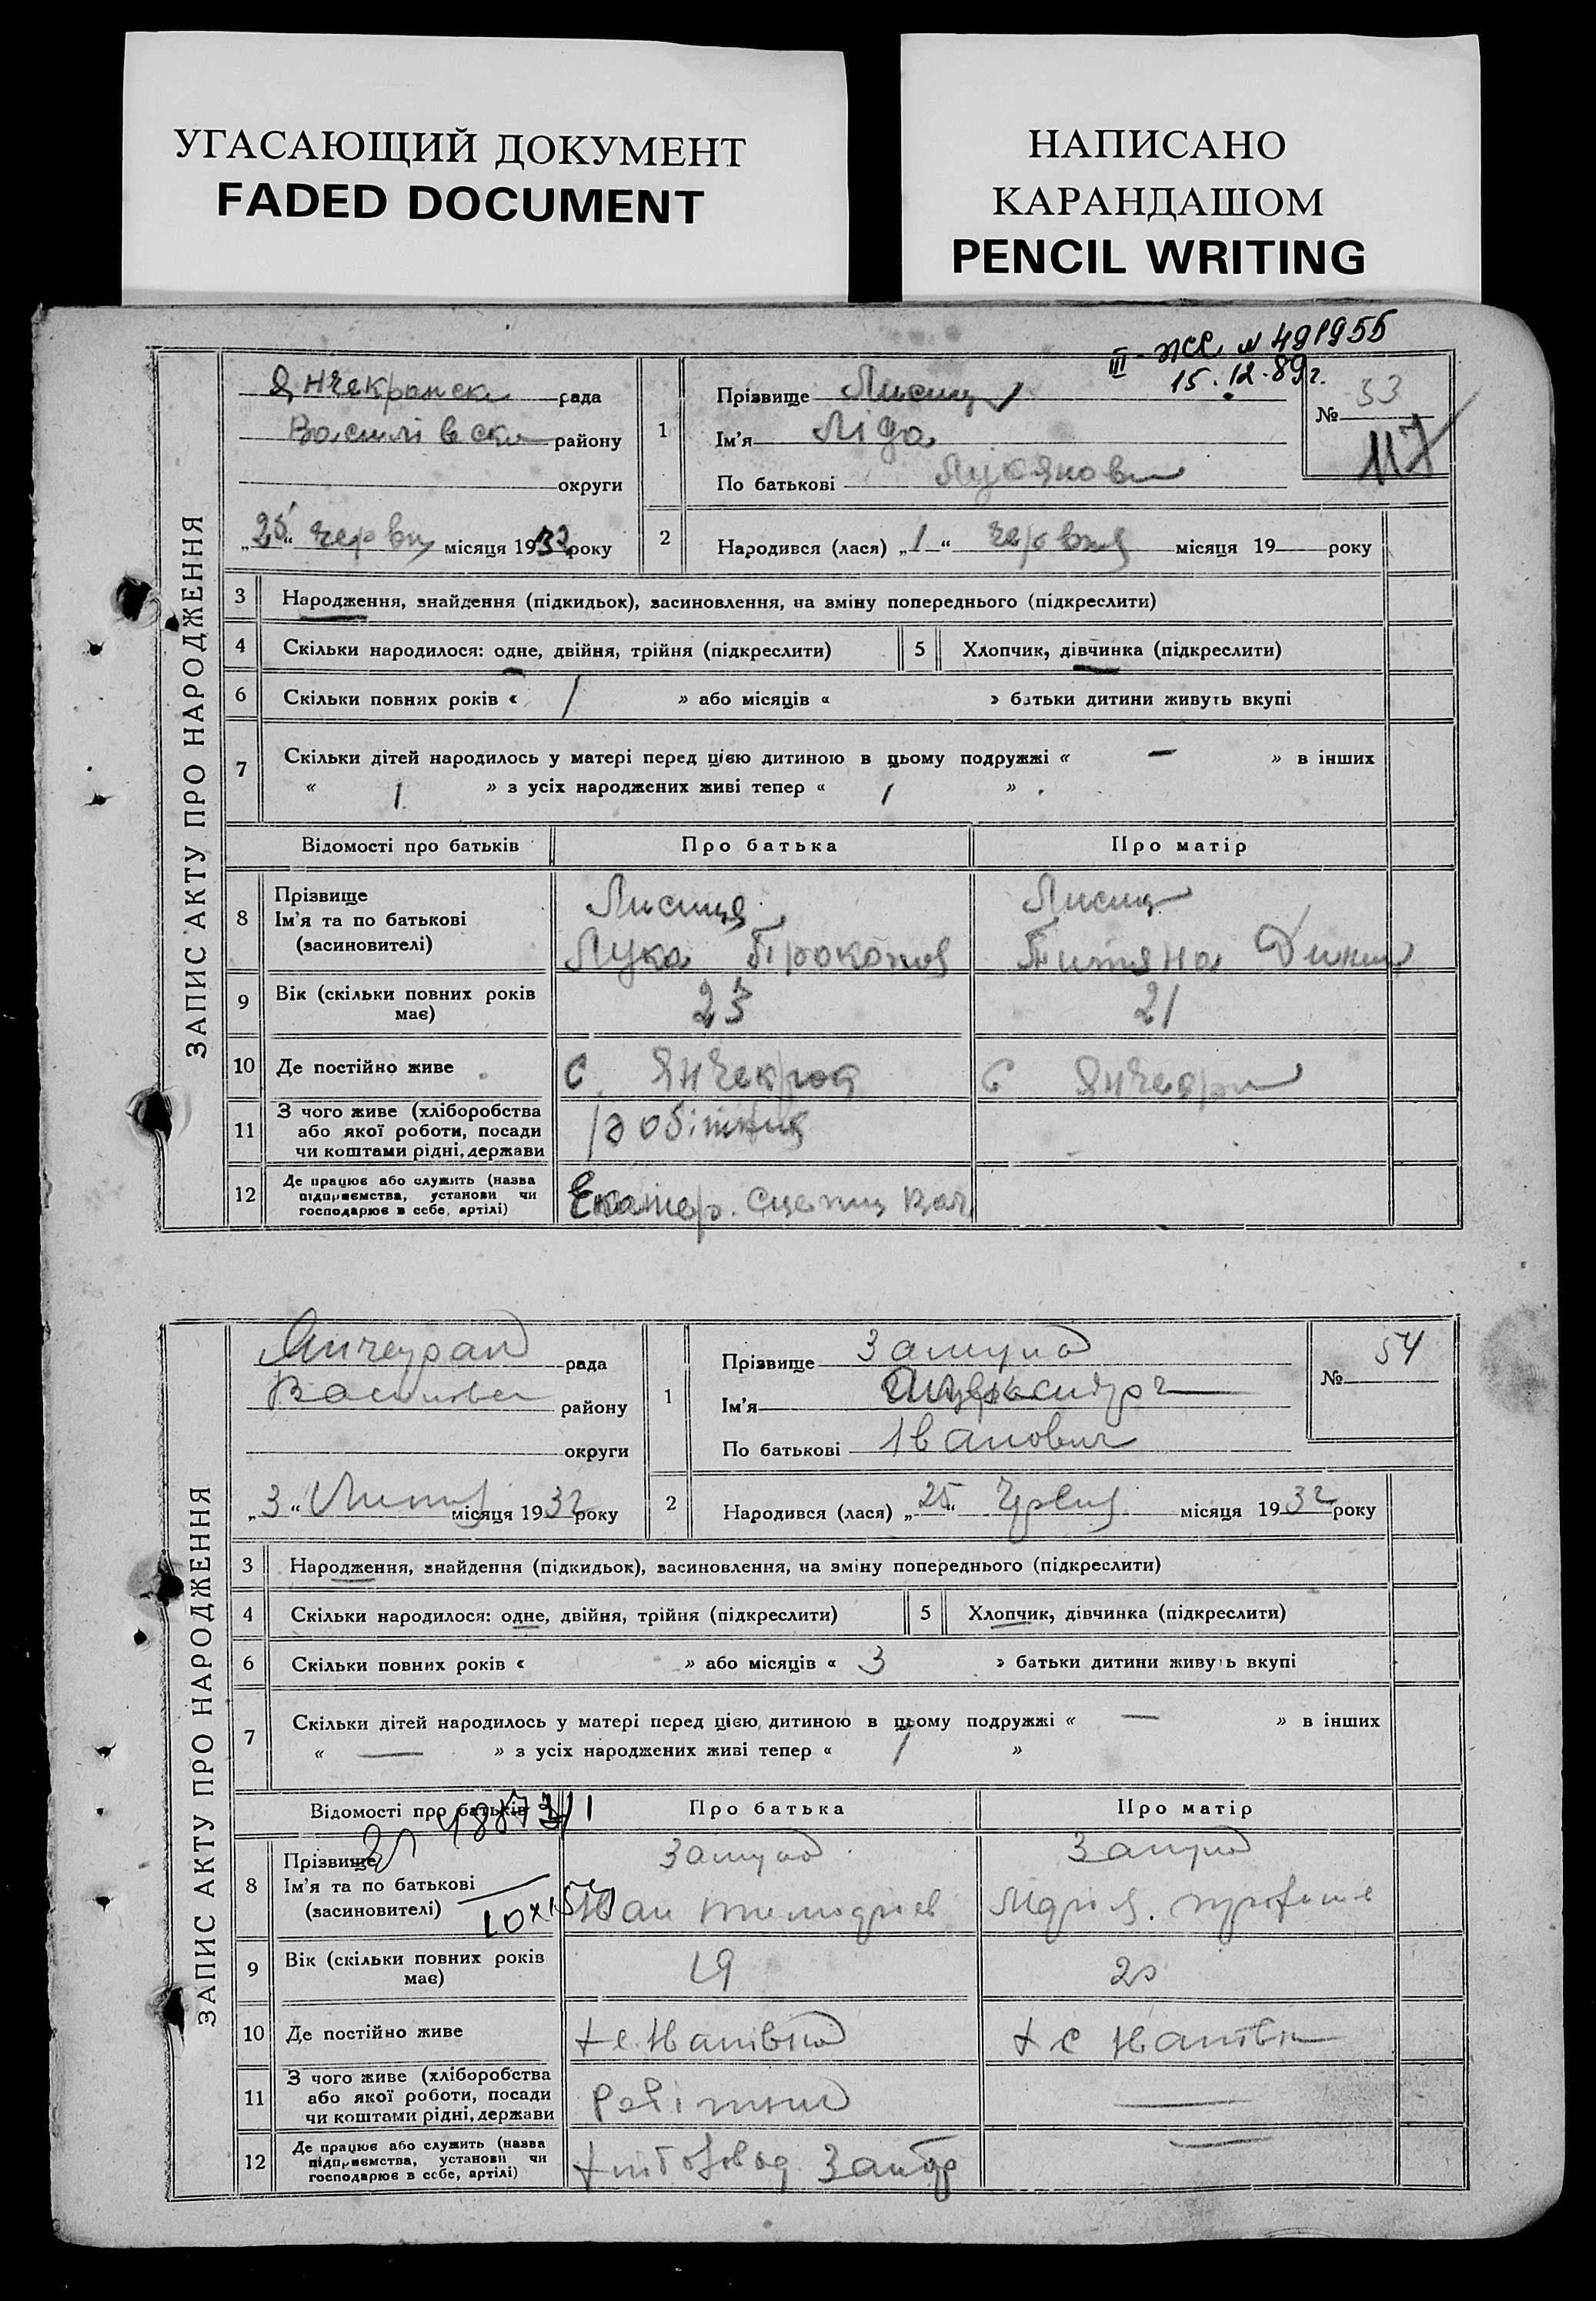 УГАСАЮЩИЙ ДОКУМЕНТ
FADED DOCUMENT
НАПИСАНО
КАРАНДАШОМ
PENCIL WRITING
III-ЖС № 491955
15.12.89г.
ЗАПИС АКТУ ПРО НАРОДЖЕННЯ
Янчекрацьк рада
Василівськ району
округи
„25“ червня місяця 1932 року
1 Прізвище Лисиця
Ім'я Ліда
По батькові
№ 53
117
2 Народився (лася) „1“ червня місяця 19 року
3 Народження, знайдення (підкидьок), засиновлення, на зміну попереднього (підкреслити)
4 Скільки народилося: одне, двійня, трійня (підкреслити) 5 Хлопчик, дівчинка (підкреслити)
6 Скільки повних років « 1 » або місяців « » батьки дитини живуть вкупі
7 Скільки дітей народилось у матері перед цією дитиною в цьому подружжі « — » в інших
« 1 » з усіх народжених живі тепер « 1 » .
Відомості про батьків Про батька Про матір
8 Прізвище
Ім'я та по батькові
(засиновителі)
Лисиця
Лука Прокопов
Лисиц
Титяна
9 Вік (скільки повних років має) 23 21
10 Де постійно живе с. Янчекрак с
11 З чого живе (хліборобства
або якої роботи, посади
чи коштами рідні, держави
робітниця
12 Де працює або служить (назва
підприємства, установи чи
господарює в себе, артілі)
Екатер.
ЗАПИС АКТУ ПРО НАРОДЖЕННЯ
Янчекрак рада
Василівськ району
округи
„3“ Липня місяця 1932 року
1 Прізвище
Ім'я
По батькові Іванович
№ 54
2 Народився (лася) „25“ Червня місяця 1932 року
3 Народження, знайдення (підкидьок), засиновлення, на зміну попереднього (підкреслити)
4 Скільки народилося: одне, двійня, трійня (підкреслити) 5 Хлопчик, дівчинка (підкреслити)
6 Скільки повних років « » або місяців « 3 » батьки дитини живуть вкупі
7 Скільки дітей народилось у матері перед цією дитиною в цьому подружжі « — » в інших
« — » з усіх народжених живі тепер « 1 »
Відомості про батьків Про батька Про матір
8 Прізвище
Ім'я та по батькові
(засиновителі)
Іван
Марія
9 Вік (скільки повних років має) 19 20
10 Де постійно живе
11 З чого живе (хліборобства
або якої роботи, посади
чи коштами рідні, держави
робітник —
12 Де працює або служить (назва
підприємства, установи чи
господарює в себе, артілі)
—